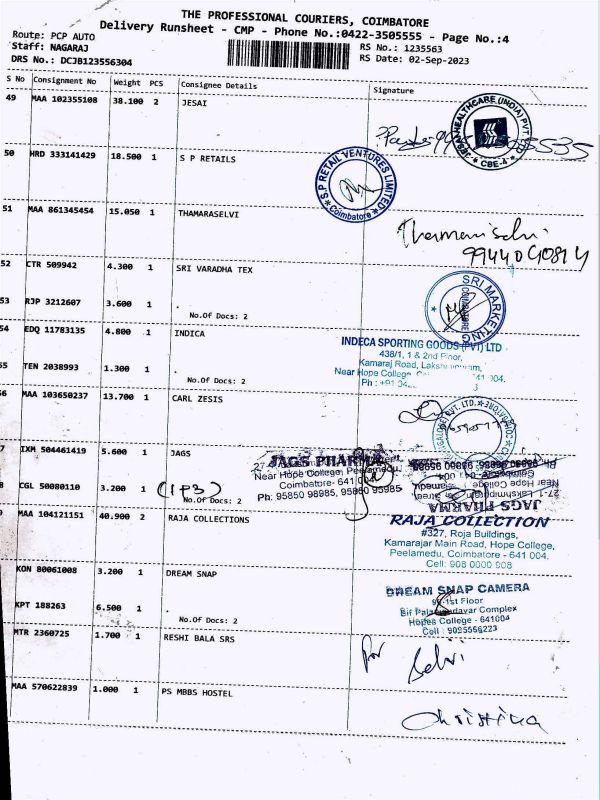 THE PROFESSIONAL COURIERS, COIMBATORE
Delivery Runsheet - CMP - Phone No.:0422-3505555 - Page No.:4
Route: PCP AUTO
Staff: NAGARAJ
DRS No.: DCJB123556304
RS No.: 1235563
RS Date: 02-Sep-2023
S No Consignment No Weight PCS Consignee Details Signature
49 MAA 102355108 38.100 2 JESAI
50 HRD 333141429 18.500 1 S P RETAILS
S.P RETAIL VENTURES LIMITED
Coimbatore
51 MAA 861345454 15.050 1 THAMARASELVI
52 CTR 509942 4.300 1 SRI VARADHA TEX
SRI MARKETING
53 RJP 3212607 3.600 1 .
No.Of Docs: 2
54 EDQ 11783135 4.800 1 INDICA
INDECA SPORTING GOODS (PVT) LTD
438/1, 1 & 2nd Floor,
Kamaraj Road,
Near Hope College,
55 TEN 2038993 1.300 1 .
No.Of Docs: 2
56 MAA 103650237 13.700 1 CARL ZESIS
7 IXM 504461419 5.600 1 JAGS
JAGS PHARMA
Near Hope College, Peelamedu,
Coimbatore- 641 004
Ph: 95850 98985, 95850 95985
8 CGL 50080110 3.200 1 .
No.Of Docs: 2
JAGS PHARMA
MAA 104121151 40.900 2 RAJA COLLECTIONS
RAJA COLLECTION
#327, Roja Buildings,
Kamarajar Main Road, Hope College,
Peelamedu, Coimbatore - 641 004.
Cell: 908 0000 908
KON 80061008 3.200 1 DREAM SNAP
DREAM SNAP CAMERA
1st Floor
Complex
Hopes College - 641004
Cell : 9095556223
KPT 188263 6.500 1 .
No.Of Docs: 2
MTR 2360725 1.700 1 RESHI BALA SRS
for Selvi
MAA 570622839 1.000 1 PS MBBS HOSTEL
Christina